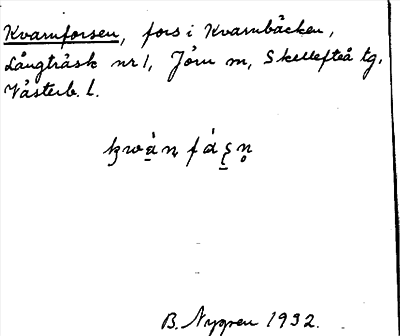 Kvarnforsen, fors i Kvarnbäcken,
Långträsk nr 1, Jörn sn, Skellefteå tg,
Västerb. l.
B. Nygren 1932.